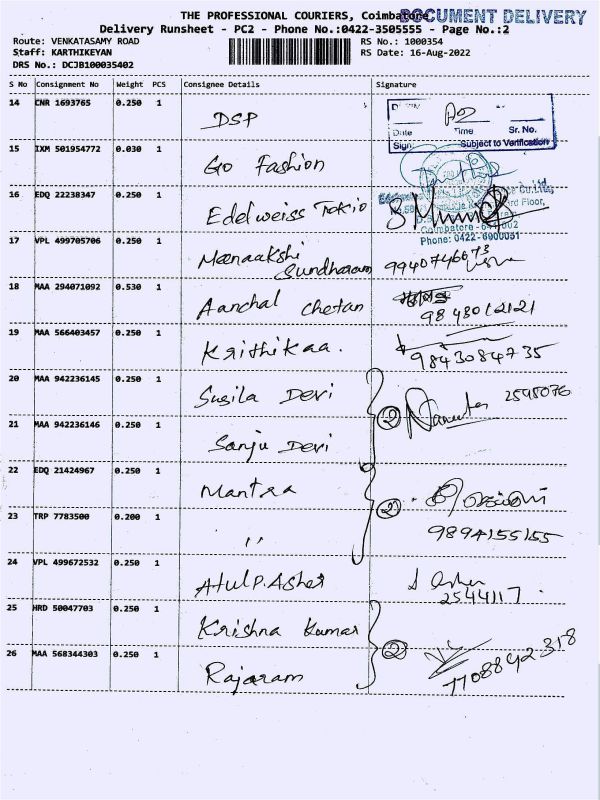 THE PROFESSIONAL COURIERS, Coimbatore
DOCUMENT DELIVERY
Delivery Runsheet - PC2 - Phone No.:0422-3505555 - Page No.:2
Route: VENKATASAMY ROAD RS No.: 1000354
Staff: KARTHIKEYAN RS Date: 16-Aug-2022
DRS No.: DCJB100035402
S No Consignment No Weight PCS Consignee Details Signature
14 CNR 1693765 0.250 1 DSP
Date Time Sr. No.
Sign Subject to Verification
15 IXM 501954772 0.030 1 Go Fashion
16 EDQ 22238347 0.250 1 Edelweiss Tokio
Floor,
Coimbatore - 641 002
Phone: 0422-6000051
17 VPL 499705706 0.250 1 Meenaakshi
Sundharam 9940746673
18 MAA 294071092 0.530 1 Aanchal Chetan
9843012121
19 MAA 566403457 0.250 1 Krithikaa.
9843084735
20 MAA 942236145 0.250 1 Susila Devi 2545076
2
21 MAA 942236146 0.250 1 Sanju Devi
22 EDQ 21424967 0.250 1 Mantra
2
23 TRP 7783500 0.200 1 ,, 9894155155
24 VPL 499672532 0.250 1 Atul P. Asher
2544117.
25 HRD 50047703 0.250 1 Krishna Kumar
2
26 MAA 568344303 0.250 1 Rajaram 7708842318